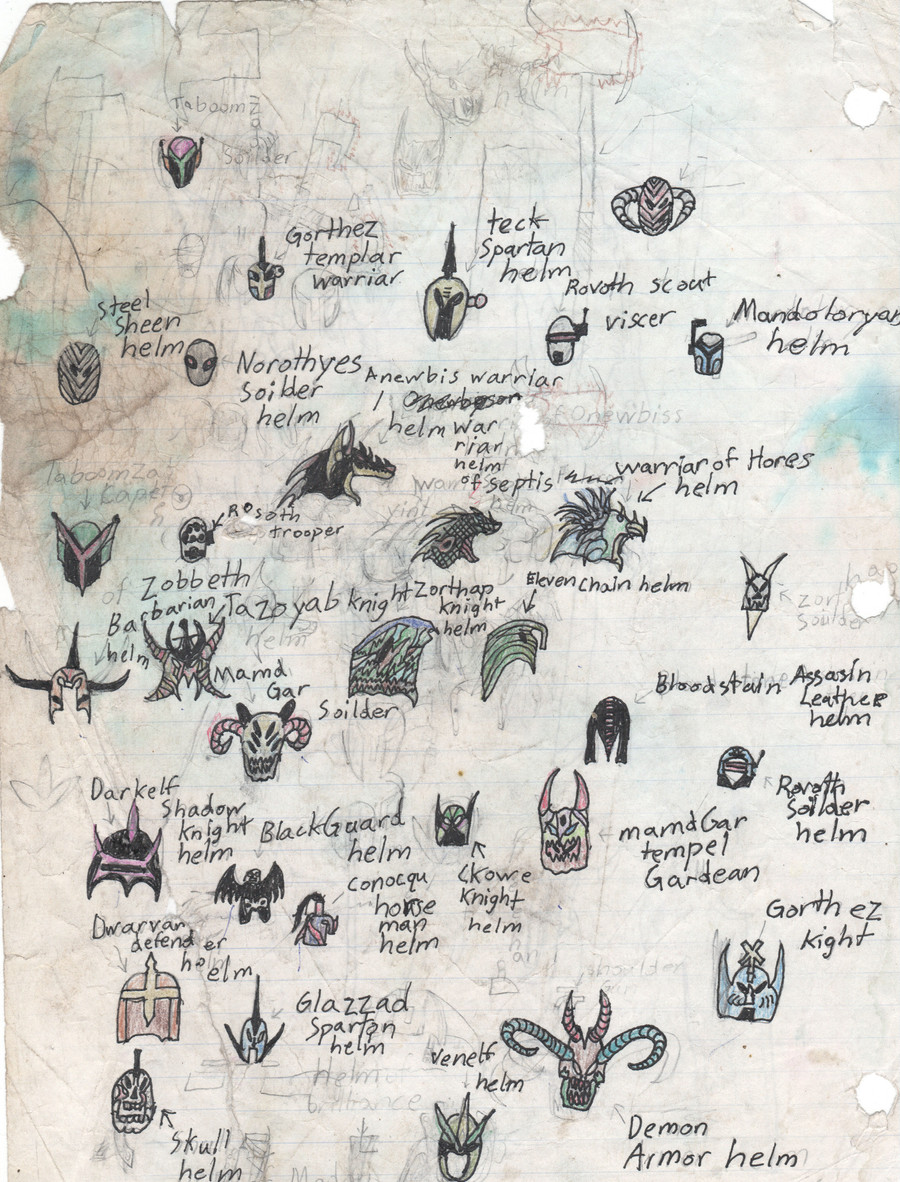 Taboomza
Soilder
helm
Gorthez
templar
warriar
teck
Spartan
helm
Rovoth scout
viscer
Mandoloryan
helm
Steel
Sheen
helm
Norothyes
Soilder
helm
Anewbis warriar
helm
war
riar
helm
of Septis
of Onewbiss
warriar of Hores
helm
Taboomza
Rosoth
trooper
of Zobbeth
Barbarian
helm
Tazoyab knight
helm
Zorthap
knight
helm
Eleven chain helm
Soulder
Mamd
Gar
Soilder
Bloodstain Assasin
Leather
helm
Rovoth
Soilder
helm
Darkelf
Shadow
knight
helm
BlackGuard
helm
conocqu
horse
man
helm
Ckowe
Knight
helm
mamdGar
tempel
Gardean
Gorthez
kight
Dwarvan
defender
helm
Glazzad
Sparton
helm
helm of
brilliance
venelf
helm
Skull
helm
Demon
Armor helm